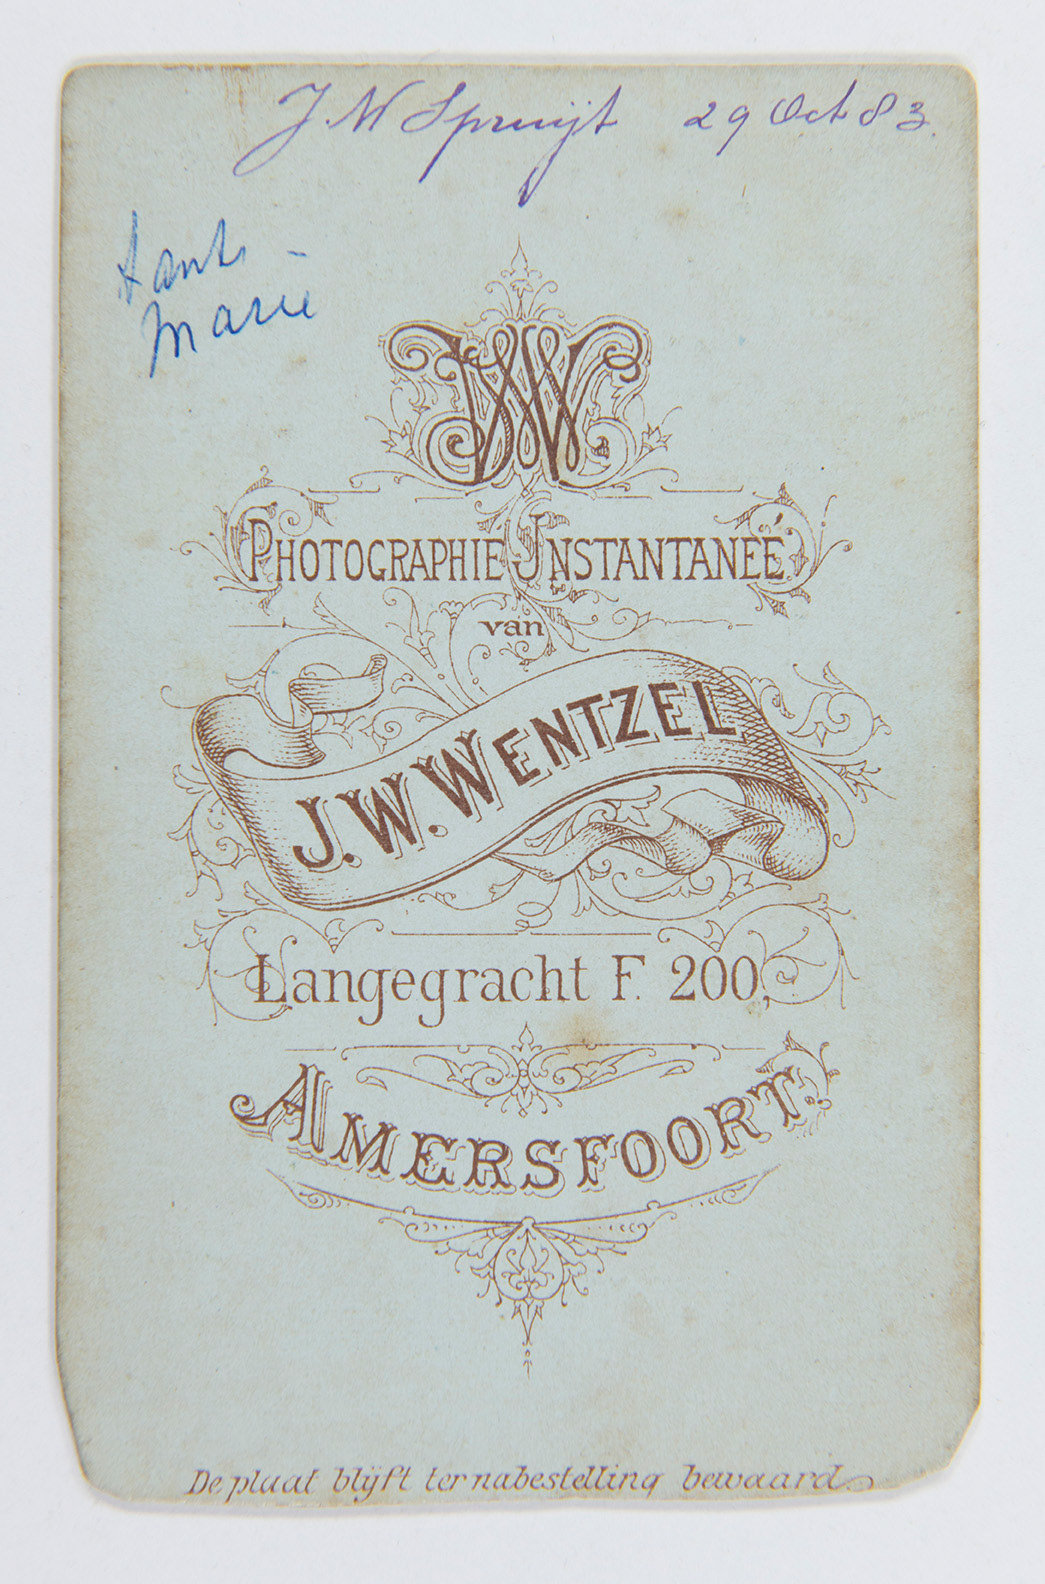 J M Spruijt 29 Oct 83.
tante -
Marie
JWW
PHOTOGRAPHIE INSTANTANEÉ
van
J. W. WENTZEL
Langegracht F. 200,
AMERSFOORT.
De plaat blijft ter nabestelling bewaard.